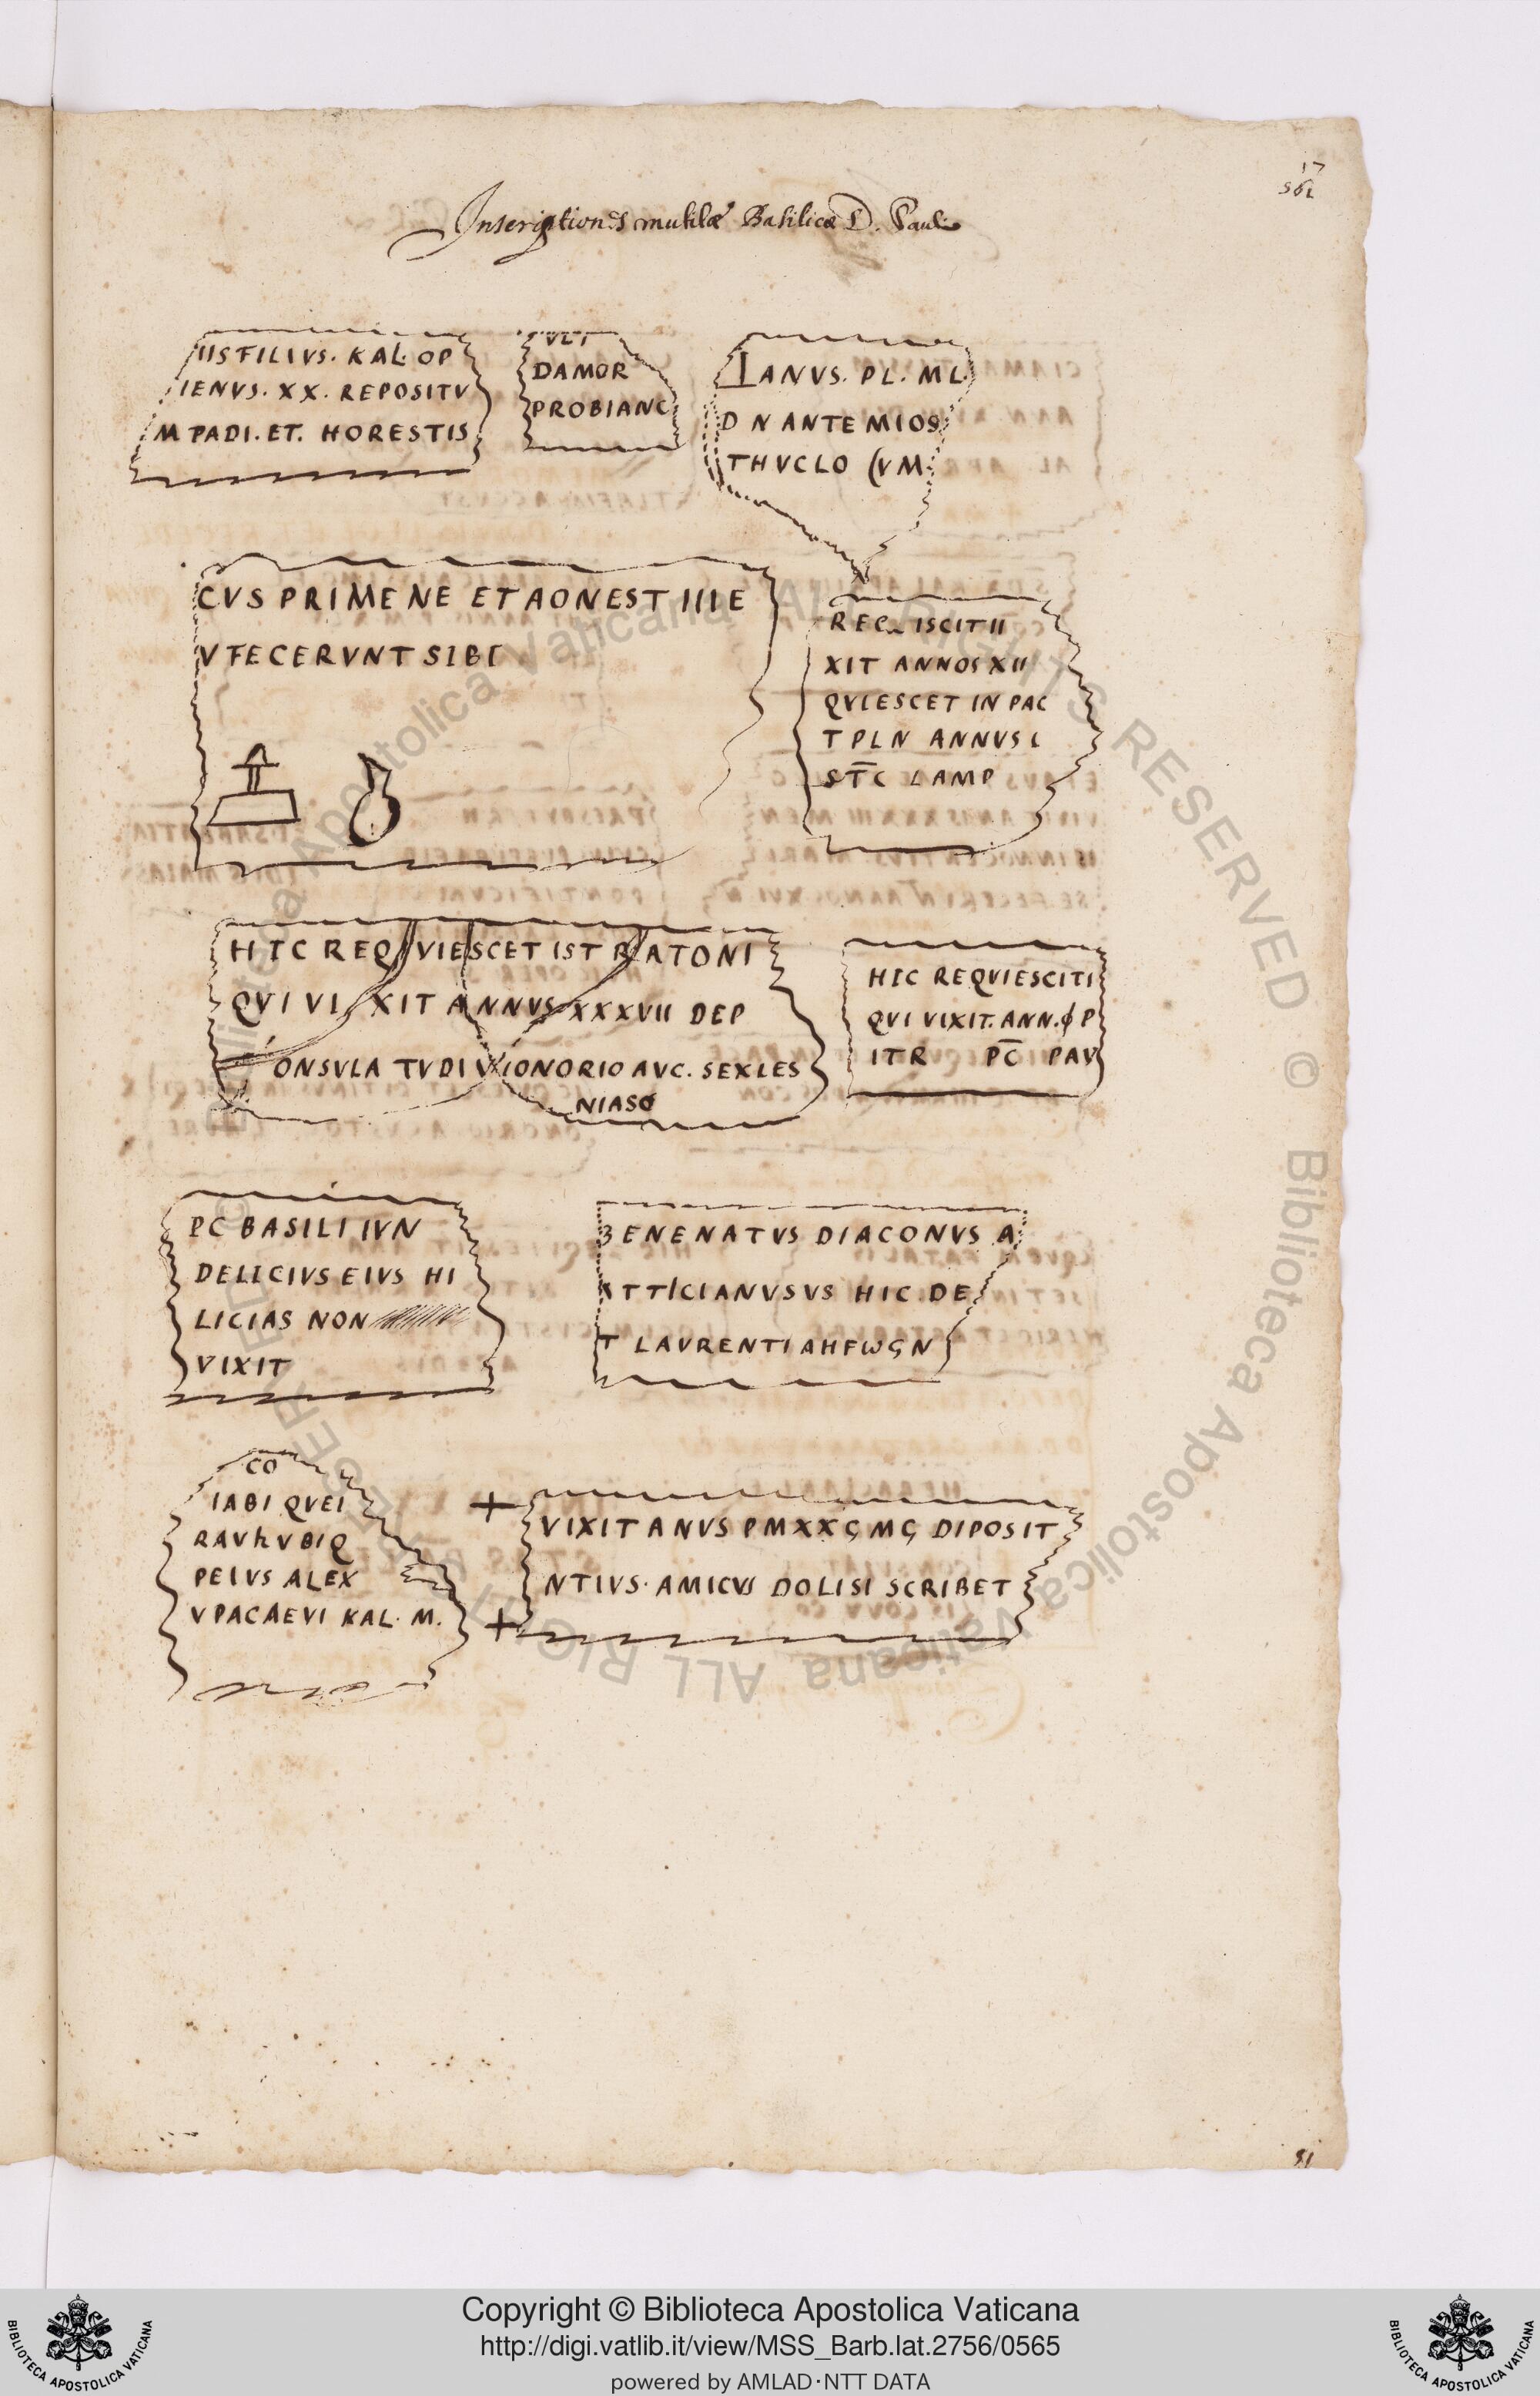 17
562
Inscriptiones mutilæ Basilicæ D. Pauli
IISFILIVS. KAL. OP
IENVS. XX. REPOSITV
M PADI. ET. HORESTIS
VLI
DAMOR
PROBIANC
IANVS. PL. ML
D N ANTEMIOS
THVCLO CVM
CVS PRIMENE ET AONEST IIIE
V FECERVNT SIBI
REQ ISCIT II
XIT ANNOS XII
QVIESCET IN PAC
T PLN ANNVS L
STC LAMP
HIC REQVIESCET IST RATONI
QVI VIXIT ANNVS XXXVII DEP
ONSVLA TVDI VIONORIO AVC. SEXIES
NIASO
HIC REQVIESCITI
QVI VIXIT. ANN. ϕ P
ITR PC PAV
PC BASILI IVN
DELICIVS EIVS HI
LICIAS NON
VIXIT
BENENATVS DIACONVS A
ATTICIANVSVS HIC DE
T LAVRENTI AHFWϚN
CO
IABI QVEI
RAVhVBIQ
PEIVS ALEX
VPACAEVI KAL. M.
+ VIXIT ANVS PMXXϚMϚ DIPOSIT
NTIVS. AMICVS DOLISI SCRIBET
+
Copyright © Biblioteca Apostolica Vaticana
http://digi.vatlib.it/view/MSS_Barb.lat.2756/0565
powered by AMLAD·NTT DATA
BIBLIOTECA APOSTOLICA VATICANA
BIBLIOTECA APOSTOLICA VATICANA